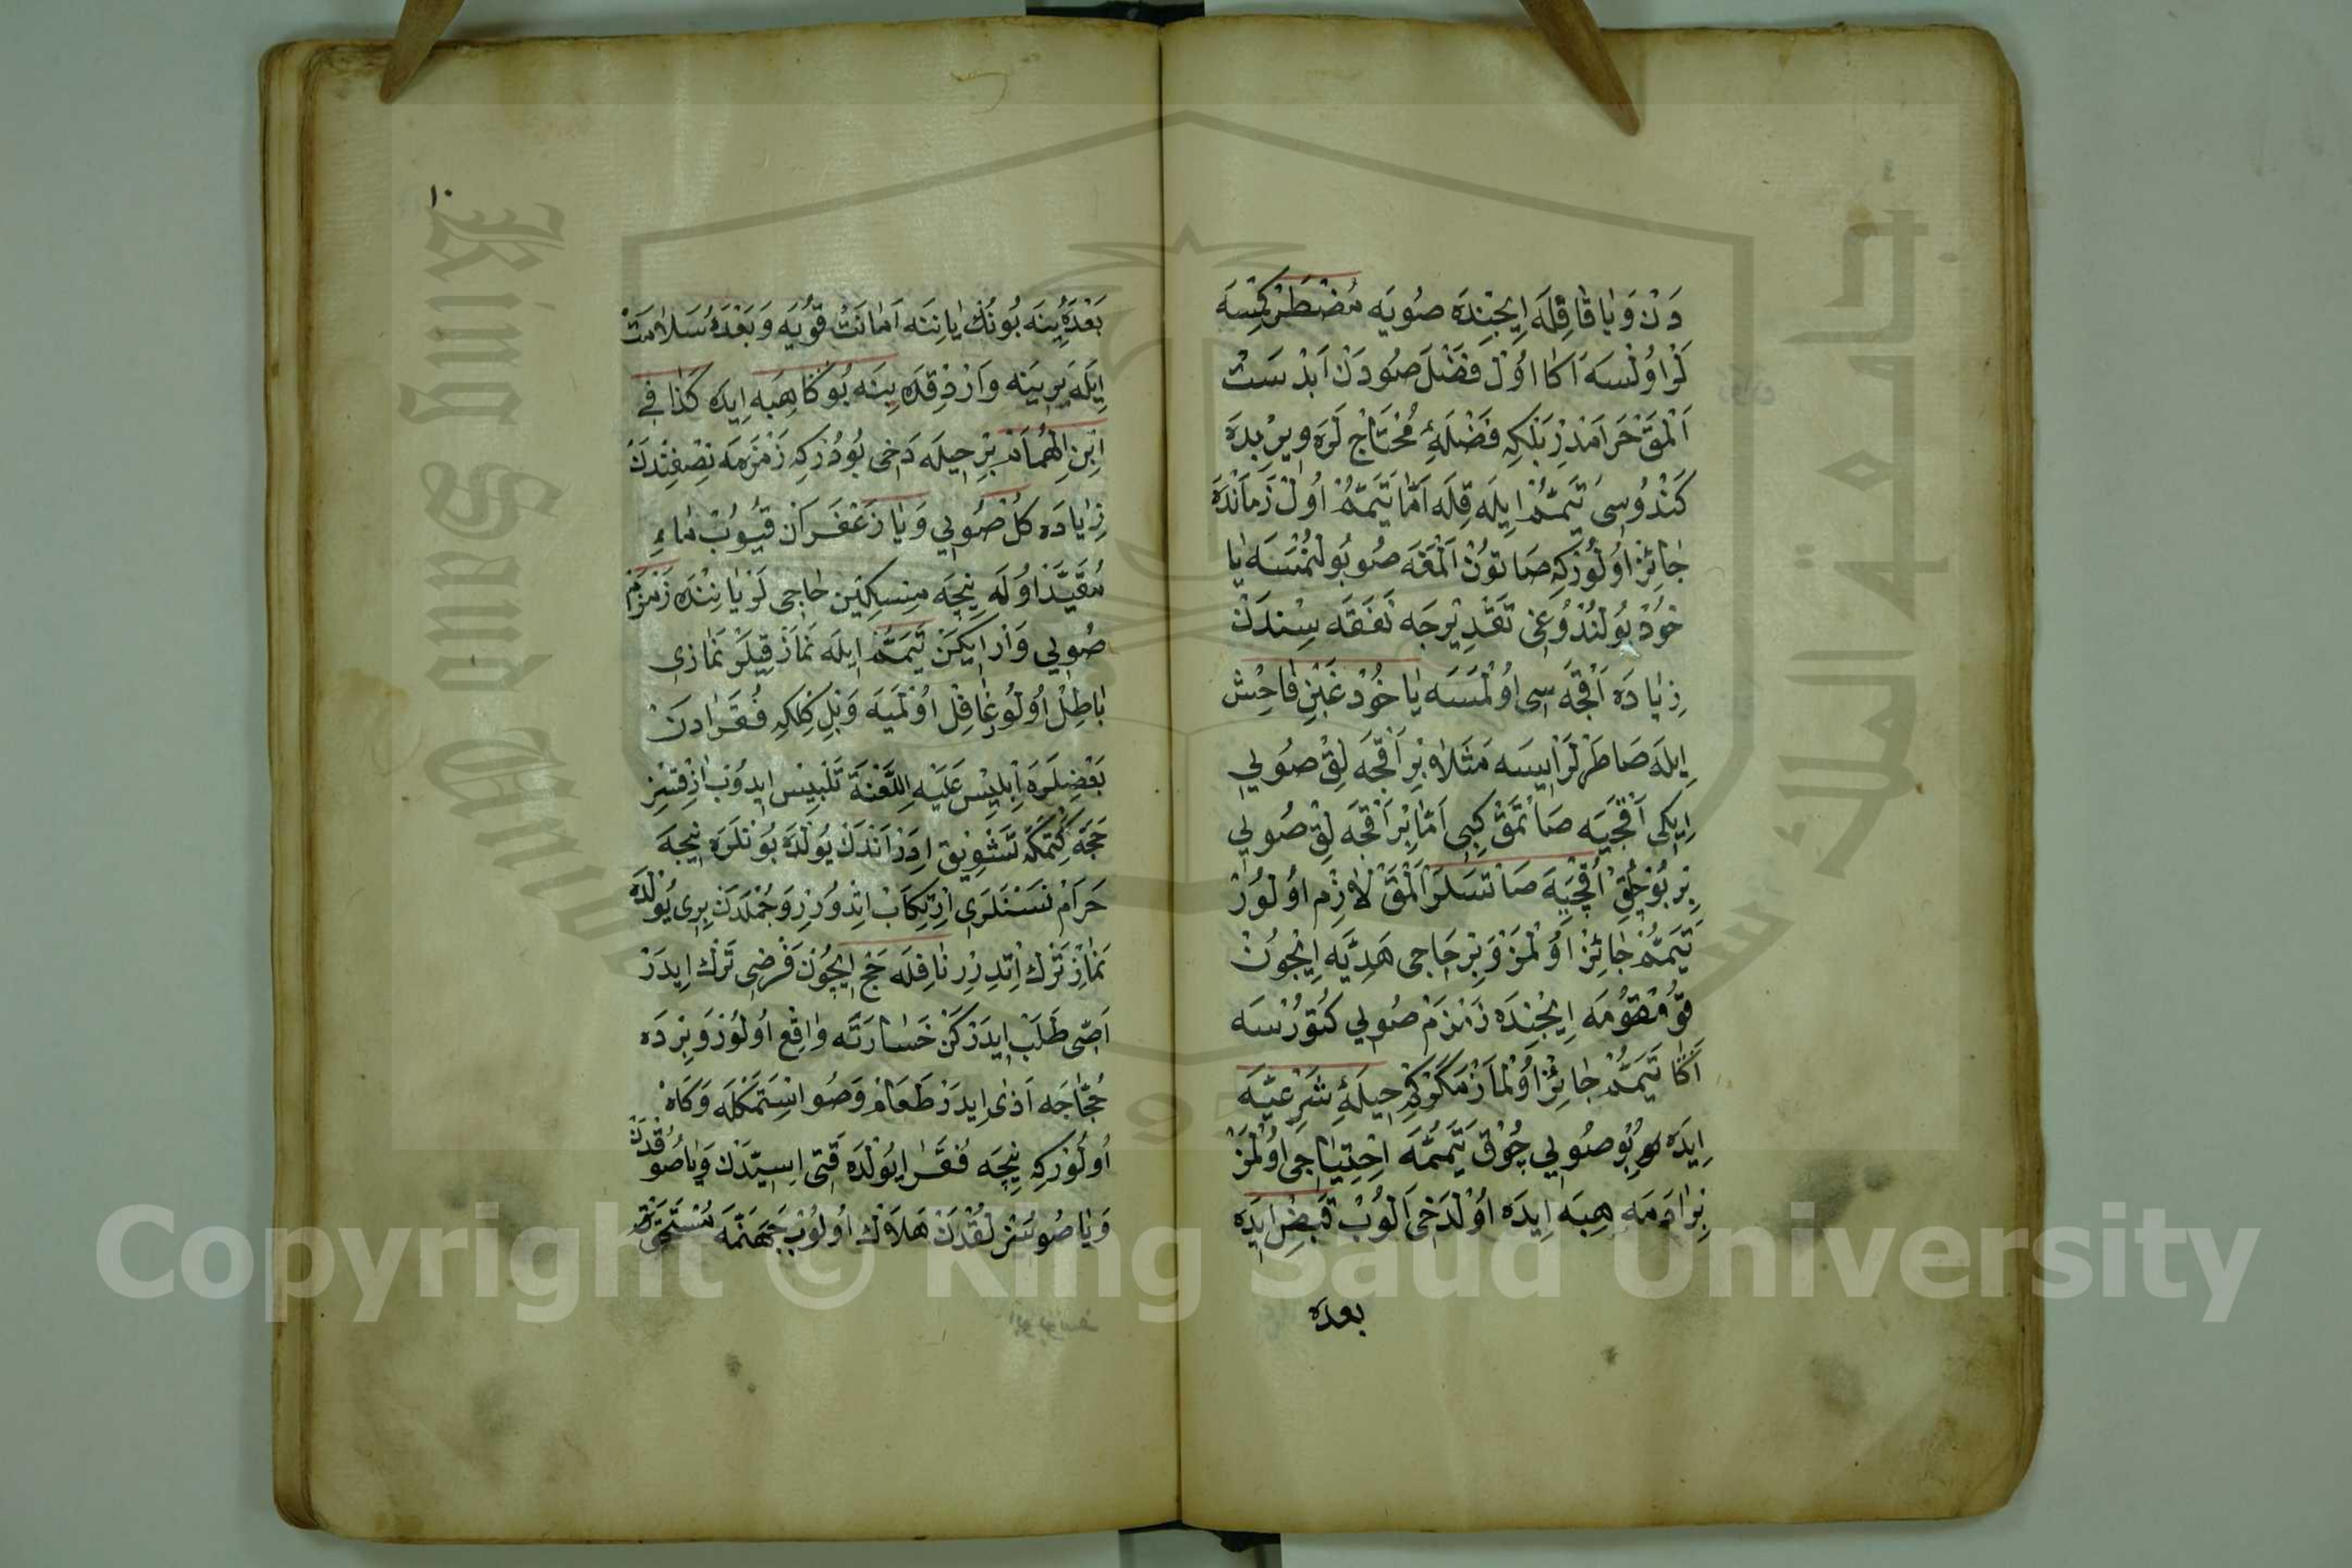 دَنْ وَيَا قَافِلَه اِيچِنْدَه صُويَه مُضْطَرْ كِمْسَه
لَرْ اُولْسَه اَكَا اُولْ فَضْلَ صُودَنْ اَبْدَسْت
اَلْمَقْ حَرَامْدِرْ بَلْكِه فَضْلَهٔ مُحْتَاجْ لَرَه وِيرِيدَه
كَنْدُوسِى تَيَمُّمْ اِيلَه قِلَه اَمَّا تَيَمُّمْ اُولْ زَمَانْدَه
جَائِزْ اُولُورْكِه صَاتُونْ اَلْمَغَه صُو بُولُنْمَسَه يَا
خُودْ بُولُنْدُوغِى تَقْدِيرْجَه نَفَقَه سِنْدَنْ
زِيَادَه اَقْچَه سِى اُولْمَسَه يَا خُودْ غَبْنِ فَاحِشْ
اِيلَه صَاطَرْلَرْ اِيسَه مَثَلَا بِرْ اَقْچَه لِقْ صُويِي
اِيكِى اَقْچَيَه صَاتْمَقْ كِبِى اَمَّا بِرْ اَقْچَه لِقْ صُويِي
بِرْ بُوچُقْ اَقْچَيَه صَاتْسَلَرْ اَلْمَقْ لَازِمْ اُولُورْ
تَيَمُّمْ جَائِزْ اُولْمَزْ وَبِرْ حَاجِى هَدِيَّه اِيچُونْ
قُومْقُومَه اِيچِنْدَه زَمْزَمْ صُويِي كُتُورْسَه
اَكَا تَيَمُّمْ جَائِزْ اُولْمَازْ مَكَرْكِه حِيلَهٔ شَرْعِيَّه
اِيدَه بُو صُويِي چُوقْ تَيَمُّمَه اِحْتِيَاجِى اُولْمَزْ
بِرْ اَدَمَه هِبَه اِيدَه اُولْدَخِى اَلُوبْ قَبْضْ اِيدَه
بعده
١٠
بَعْدَه يِنَه بُونُكْ يَانِنَه اَمَانَتْ قُويَه وَبَعْدَه سَلَامَتْ
اِيلَه يِرِينَه وَارْدِقْدَه يِنَه بُوكَا هِبَه اِيدَه كَذَا فِي
اِبْنِ الْهُمَامْ بِرْ حِيلَه دَخِى بُودُرْكِه زَمْزَمَه نِصْفِنْدَنْ
زِيَادَه كُلْ صُويِي وَيَا زَعْفَرَانْ قَيُوبْ مَاءِ
مُقَيَّدْ اُولَه نِيچَه مِسْكِينْ حَاجِى لَرْ يَانِنْدَه زَمْزَمْ
صُويِي وَارْ اِيكَنْ تَيَمُّمْ اِيلَه نَمَازْ قِيلَرْ نَمَازِى
بَاطِلْ اُولُورْ غَافِلْ اُولْمَيَه وَبِلْ كِلْكِه فُقَرَادَنْ
بَعْضِلَرَه اِبْلِيسْ عَلَيْهِ اللَّعْنَة تَلْبِيسْ اِيدُوبْ اَزِقْسِزْ
حَجَّه كِتْمَكَه تَشْوِيقْ اِدَرْ اَنْدَنْ يُولْدَه بُونْلَرَه نِيجَه
حَرَامْ نَسْنَلَرِى اِرْتِكَابْ اِتْدُورُرْ وَجُمْلَدَنْ بِرِى يُولْدَه
نَمَازْ تَرْك اِتْدِرِرْ نَافِلَه حَجْ اِيچُونْ فَرْضِى تَرْك اِيدَرْ
اَصِّى طَلَبْ اِيدَرْكَنْ خَسَارَتَه وَاقِعْ اُولُورْ وَبِرْدَه
حُجَّاجَه اَذٰى اِيدَرْ طَعَامْ وَصُو اِسْتَمَكْلَه وَكَاهْ
اُولُورْكِه نِيچَه فُقَرَا يُولْدَه قَتِى اِسِّيدَنْ وَيَا صُوُقْدَنْ
وَيَا صُوسُزْلُقْدَنْ هَلَاكْ اُولُوبْ جَهَنَّمَه مُسْتَحِقْ
Copyright © King Saud University